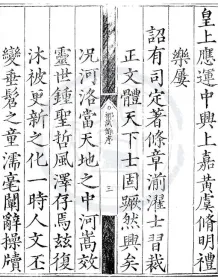 皇上應運中興上嘉黃虞脩明禮
樂屢
詔有司定著條章湔濯士習裁
正文體天下士固蹶然興矣
三
况河洛當天地之中河嵩效
靈世鍾聖哲風澤存焉茲復
沐被更新之化一時人文丕
變垂髫之童濡毫闡辭操牘